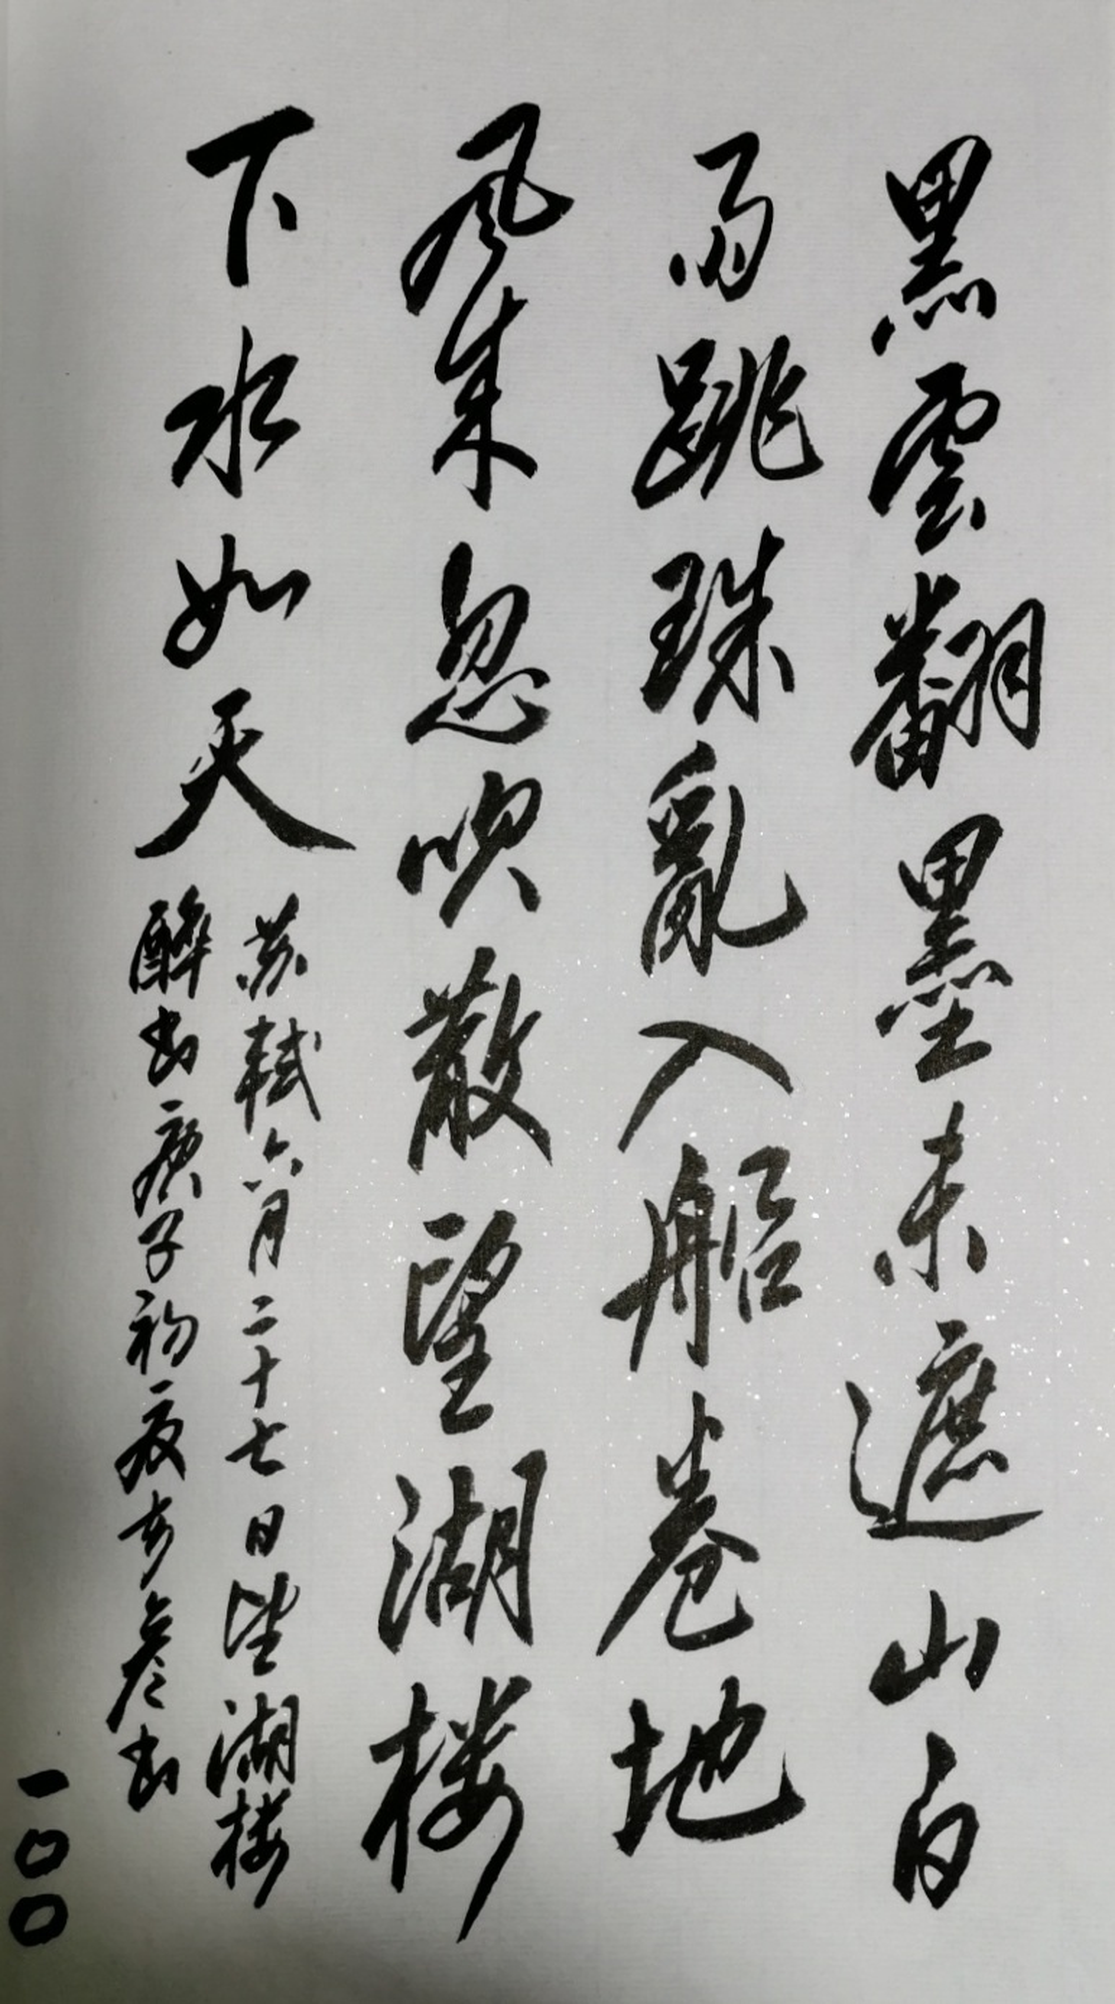 黑雲翻墨未遮山白
雨跳珠亂入船卷地
風来忽吹散望湖楼
下水如天
苏軾六月二十七日望湖楼
醉书庚子初夏书
一〇〇